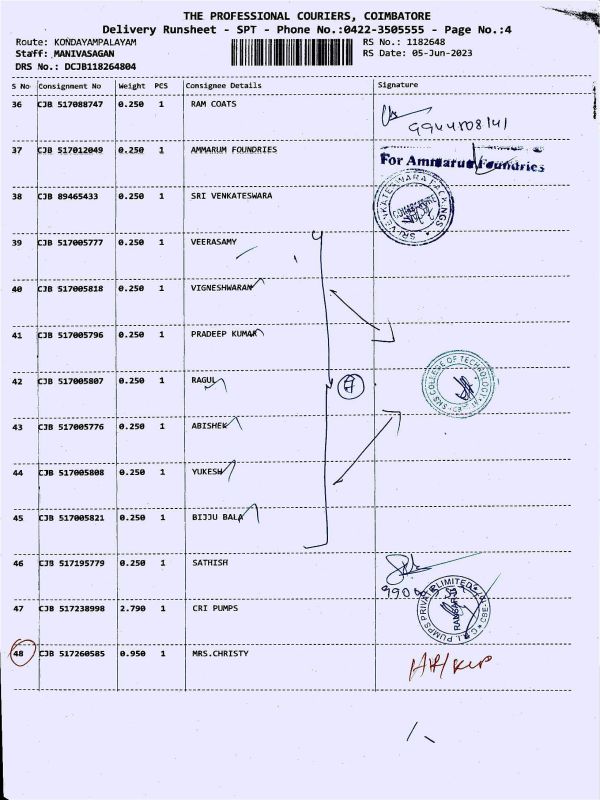 THE PROFESSIONAL COURIERS, COIMBATORE
Delivery Runsheet - SPT - Phone No.:0422-3505555 - Page No.:4
Route: KONDAYAMPALAYAM RS No.: 1182648
Staff: MANIVASAGAN RS Date: 05-Jun-2023
DRS No.: DCJB118264804
S No Consignment No Weight PCS Consignee Details Signature
36 CJB 517088747 0.250 1 RAM COATS
37 CJB 517012049 0.250 1 AMMARUM FOUNDRIES
For Ammarum Foundries
38 CJB 89465433 0.250 1 SRI VENKATESWARA
SRI VENKATESWARA PACKINGS
39 CJB 517005777 0.250 1 VEERASAMY
40 CJB 517005818 0.250 1 VIGNESHWARAN
41 CJB 517005796 0.250 1 PRADEEP KUMAR
42 CJB 517005807 0.250 1 RAGUL
SNS COLLEGE OF TECHNOLOGY
43 CJB 517005776 0.250 1 ABISHEK
44 CJB 517005808 0.250 1 YUKESH
45 CJB 517005821 0.250 1 BIJJU BALA
46 CJB 517195779 0.250 1 SATHISH
47 CJB 517238998 2.790 1 CRI PUMPS
C.R.I. PUMPS PRIVATE LIMITED
48 CJB 517260585 0.950 1 MRS.CHRISTY